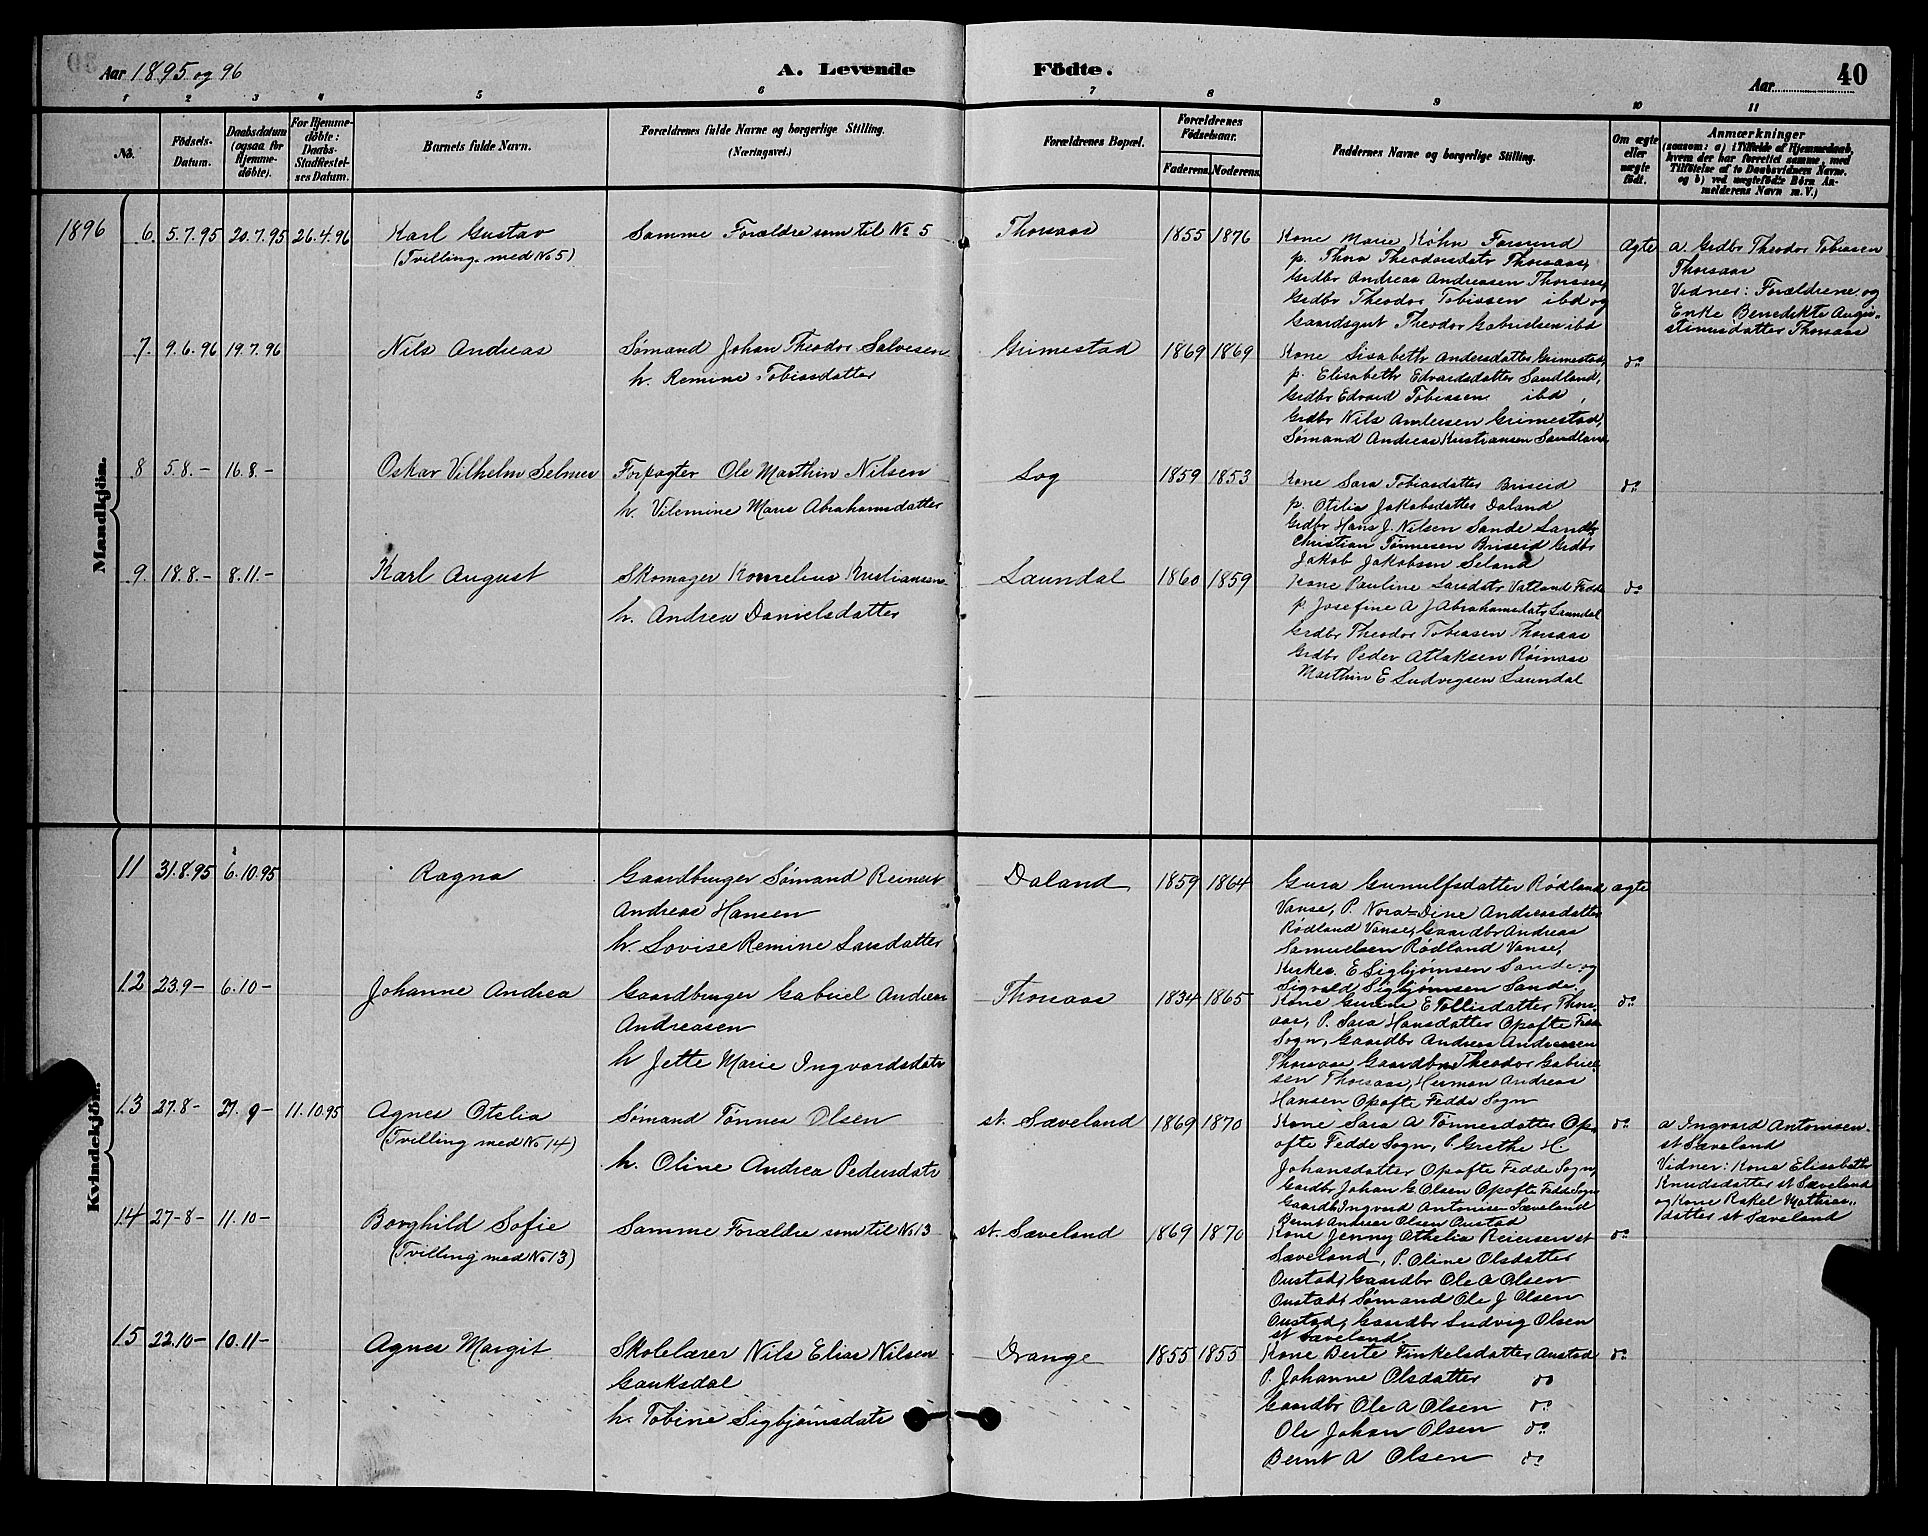 Aar 1895 og 96
A. Levende Födte.
Aar
40
1 2 3 4 5 6 7 8 9 10 11
No.
Födsels-Datum.
Daabsdatum (ogsaa for Hjemme-döbte).
For Hjemme-döbte: Daabs-Stadfæstel-ses Datum.
Barnets fulde Navn.
Forældrenes fulde Navne og borgerlige Stilling.
(Næringsvei.)
Forældrenes Bopæl.
Forældrenes Födselsaar.
Faderens. Moderens.
Faddernes Navne og borgerlige Stilling.
Om ægte eller uægte födt.
Anmærkninger
(saasom: a) i Tilfælde af Hjemmedaab, hvem der har forrettet samme, med Tilföielse af to Daabsvidners Navne, og b) ved uægtefödte Börn An-melderens Navn m. V.)
Mandkjön.
1896 6 5.7.95 20.7.95 26.4.96 Karl Gustav Samme Forældre som til No 5 Thorsaas 1855 1876 Kone Marie Køhn Farsund Ægte a. Grdbr Theodor Tobiasen
(Tvilling med No 5) p. Thora Theodorsdatr Thorsaas, Thorsaas
Grdbr Andreas Andreassen Thorsaas, Vidner: Forældrene og
Grdbr Theodor Tobiasen ibd og Enke Benedikte Augu-
Gaardsgut Theodor Gabrielsen ibd stinusdatter Thorsaas
7. 9.6.96 19.7.96 Nils Andreas Sømand Johan Theodor Salvesen Grimestad 1869 1869 Kone Lisabeth Andersdatter Grimestad, do
h. Remine Tobiasdatter p. Elisabeth Edvardsdatter Sandland,
Grdbr Edvard Tobiassen ibd,
Grdbr Nils Andersen Grimestad,
Sømand Andreas Kristiansen Sandland
8 5.8.- 16.8- Oskar Vilhelm Selmer Forpagter Ole Marthin Nilsen Log 1859 1853 Kone Sara Tobiasdatter Briseid do
h. Vilemine Marie Abrahamsdatter p. Otilia Jakobsdatter Daland
Grdbr Hans J. Nilsen Sande Landbr
Christian Tønnesen Briseid Grdbr
Jakob Jakobsen Seland
9. 18.8.- 8.11- Karl August Skomager Kornelius Kristiansen Laundal 1860 1859 Kone Pauline Larsdatr Vatland Fedde do
h. Andrea Danielsdatter p. Josefine A J Abrahamsdatr Laundal
Grdbr Theodor Tobiasen Thorsaas
Grdbr Peder Atlaksen Røinaas
Marthin E Ludvigsen Laundal
Kvindekjön.
11 31.8.95 6.10.95 Ragna Gaardbruger Sømand Reinert Daland 1859 1864 Gura Gunulfsdatter Rødland ægte
Andreas Hansen Vanse, P. Nora Dine Andreasdatter
h. Lovise Remine Larsdatter Rødland Vanse, Gaardbr Andreas
Samuelsen Rødland Vanse,
Kirkes. E Sigbjørnsen Sande og
Sigvald Sigbjørnsen Sande.
12 23.9- 6.10- Johanne Andrea Gaardbruger Gabriel Andreas Thorsaas 1834 1865 Kone Gurine E Tollisdatter Thors- do
Andreasen aas, P. Sara Hansdatter Opofte Fedde
h Jette Marie Ingvardsdatr Sogn, Gaardbr Andreas Andreassen
Thorsaas Gaardbr Theodor Gabriel-
sen Thorsaas, Herman Andreas
Hansen Opofte Fedde Sogn
13 27.8- 27.9- 11.10.95 Agnes Otelia Sømand Tønnes Olsen st. Sæveland 1869 1870 Kone Sara A Tønnesdatter Op- do a Ingvard Antonisen
(Tvilling med No 14) h. Oline Andrea Pedersdatr ofte Fedde Sogn, P. Grethe H st Sæveland
Johansdatter Opofte Fedde Sogn, Vidner: Kone Elisabeth
Gardbr Johan G. Olsen Opofte Fedde Sogn Knudsdatter st Sæveland
Gaardb Ingvard Antonisen Sæveland og Kone Rakel Mathias-
Bernt Andreas Olsen Oustad datter st Sæveland
14 27-8- 11.10- Borghild Sofie Samme Forældre som til No 13 st. Sæveland 1869 1870 Kone Jenny Othelia Reiersen st do
(Tvilling med No 13) Sæveland, P. Oline Olsdatter
Oustad, Gaardbr Ole A Olsen
Oustad, Sømand Ole J Olsen
Oustad, Gaardbr Ludvig Olsen
st Sæveland.
15 22.10- 10.11- Agnes Margit Skolelærer Nils Elias Nilsen Drange 1855 1855 Kone Berte Finkelsdatter Austad do
Gauksdal P. Johanne Olsdatter do
h. Tobine Sigbjørnsdatr Gaardbr Ole A Olsen do
Ole Johan Olsen do
Bernt A Olsen do